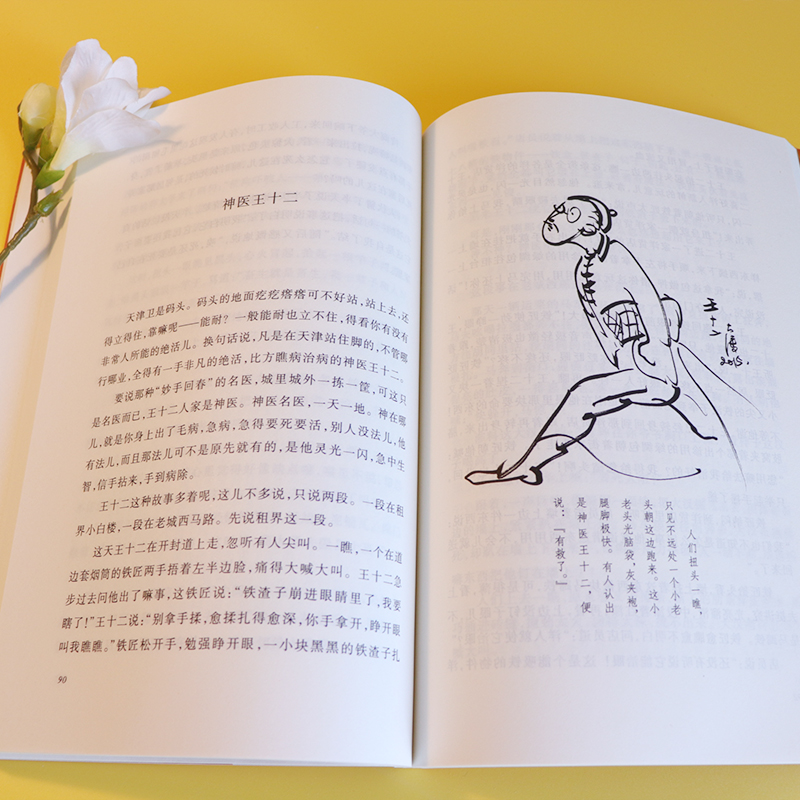 神医王十二
天津卫是码头。码头的地面疙疙瘩瘩可不好站，站上去，还
得立得住，靠嘛呢——能耐？一般能耐也立不住，得看你有没有
非常人所能的绝活儿。换句话说，凡是在天津站住脚的，不管哪
行哪业，全得有一手非凡的绝活，比方瞧病治病的神医王十二。
要说那种“妙手回春”的名医，城里城外一拣一筐，可这只
是名医而已，王十二人家是神医。神医名医，一天一地。神在哪
儿，就是你身上出了毛病，急病，急得要死要活，别人没法儿，他
有法儿，而且那法儿可不是原先就有的，是他灵光一闪，急中生
智，信手拈来，手到病除。
王十二这种故事多着呢，这儿不多说，只说两段。一段在租
界小白楼，一段在老城西马路。先说租界这一段。
这天王十二在开封道上走，忽听有人尖叫。一瞧，一个在道
边套烟筒的铁匠两手捂着左半边脸，痛得大喊大叫。王十二急
步过去问他出了嘛事，这铁匠说：“铁渣子崩进眼睛里了，我要
瞎了！”王十二说：“别拿手揉，愈揉扎得愈深，你手拿开，睁开眼
叫我瞧瞧。”铁匠松开手，勉强睁开眼，一小块黑黑的铁渣子扎
90
王十二
2015.
人们扭头一瞧，
只见不远处一个小老
头朝这边跑来。这小
老头光脑袋，灰夹袍，
腿脚极快。有人认出
是神医王十二，便
说：“有救了。”